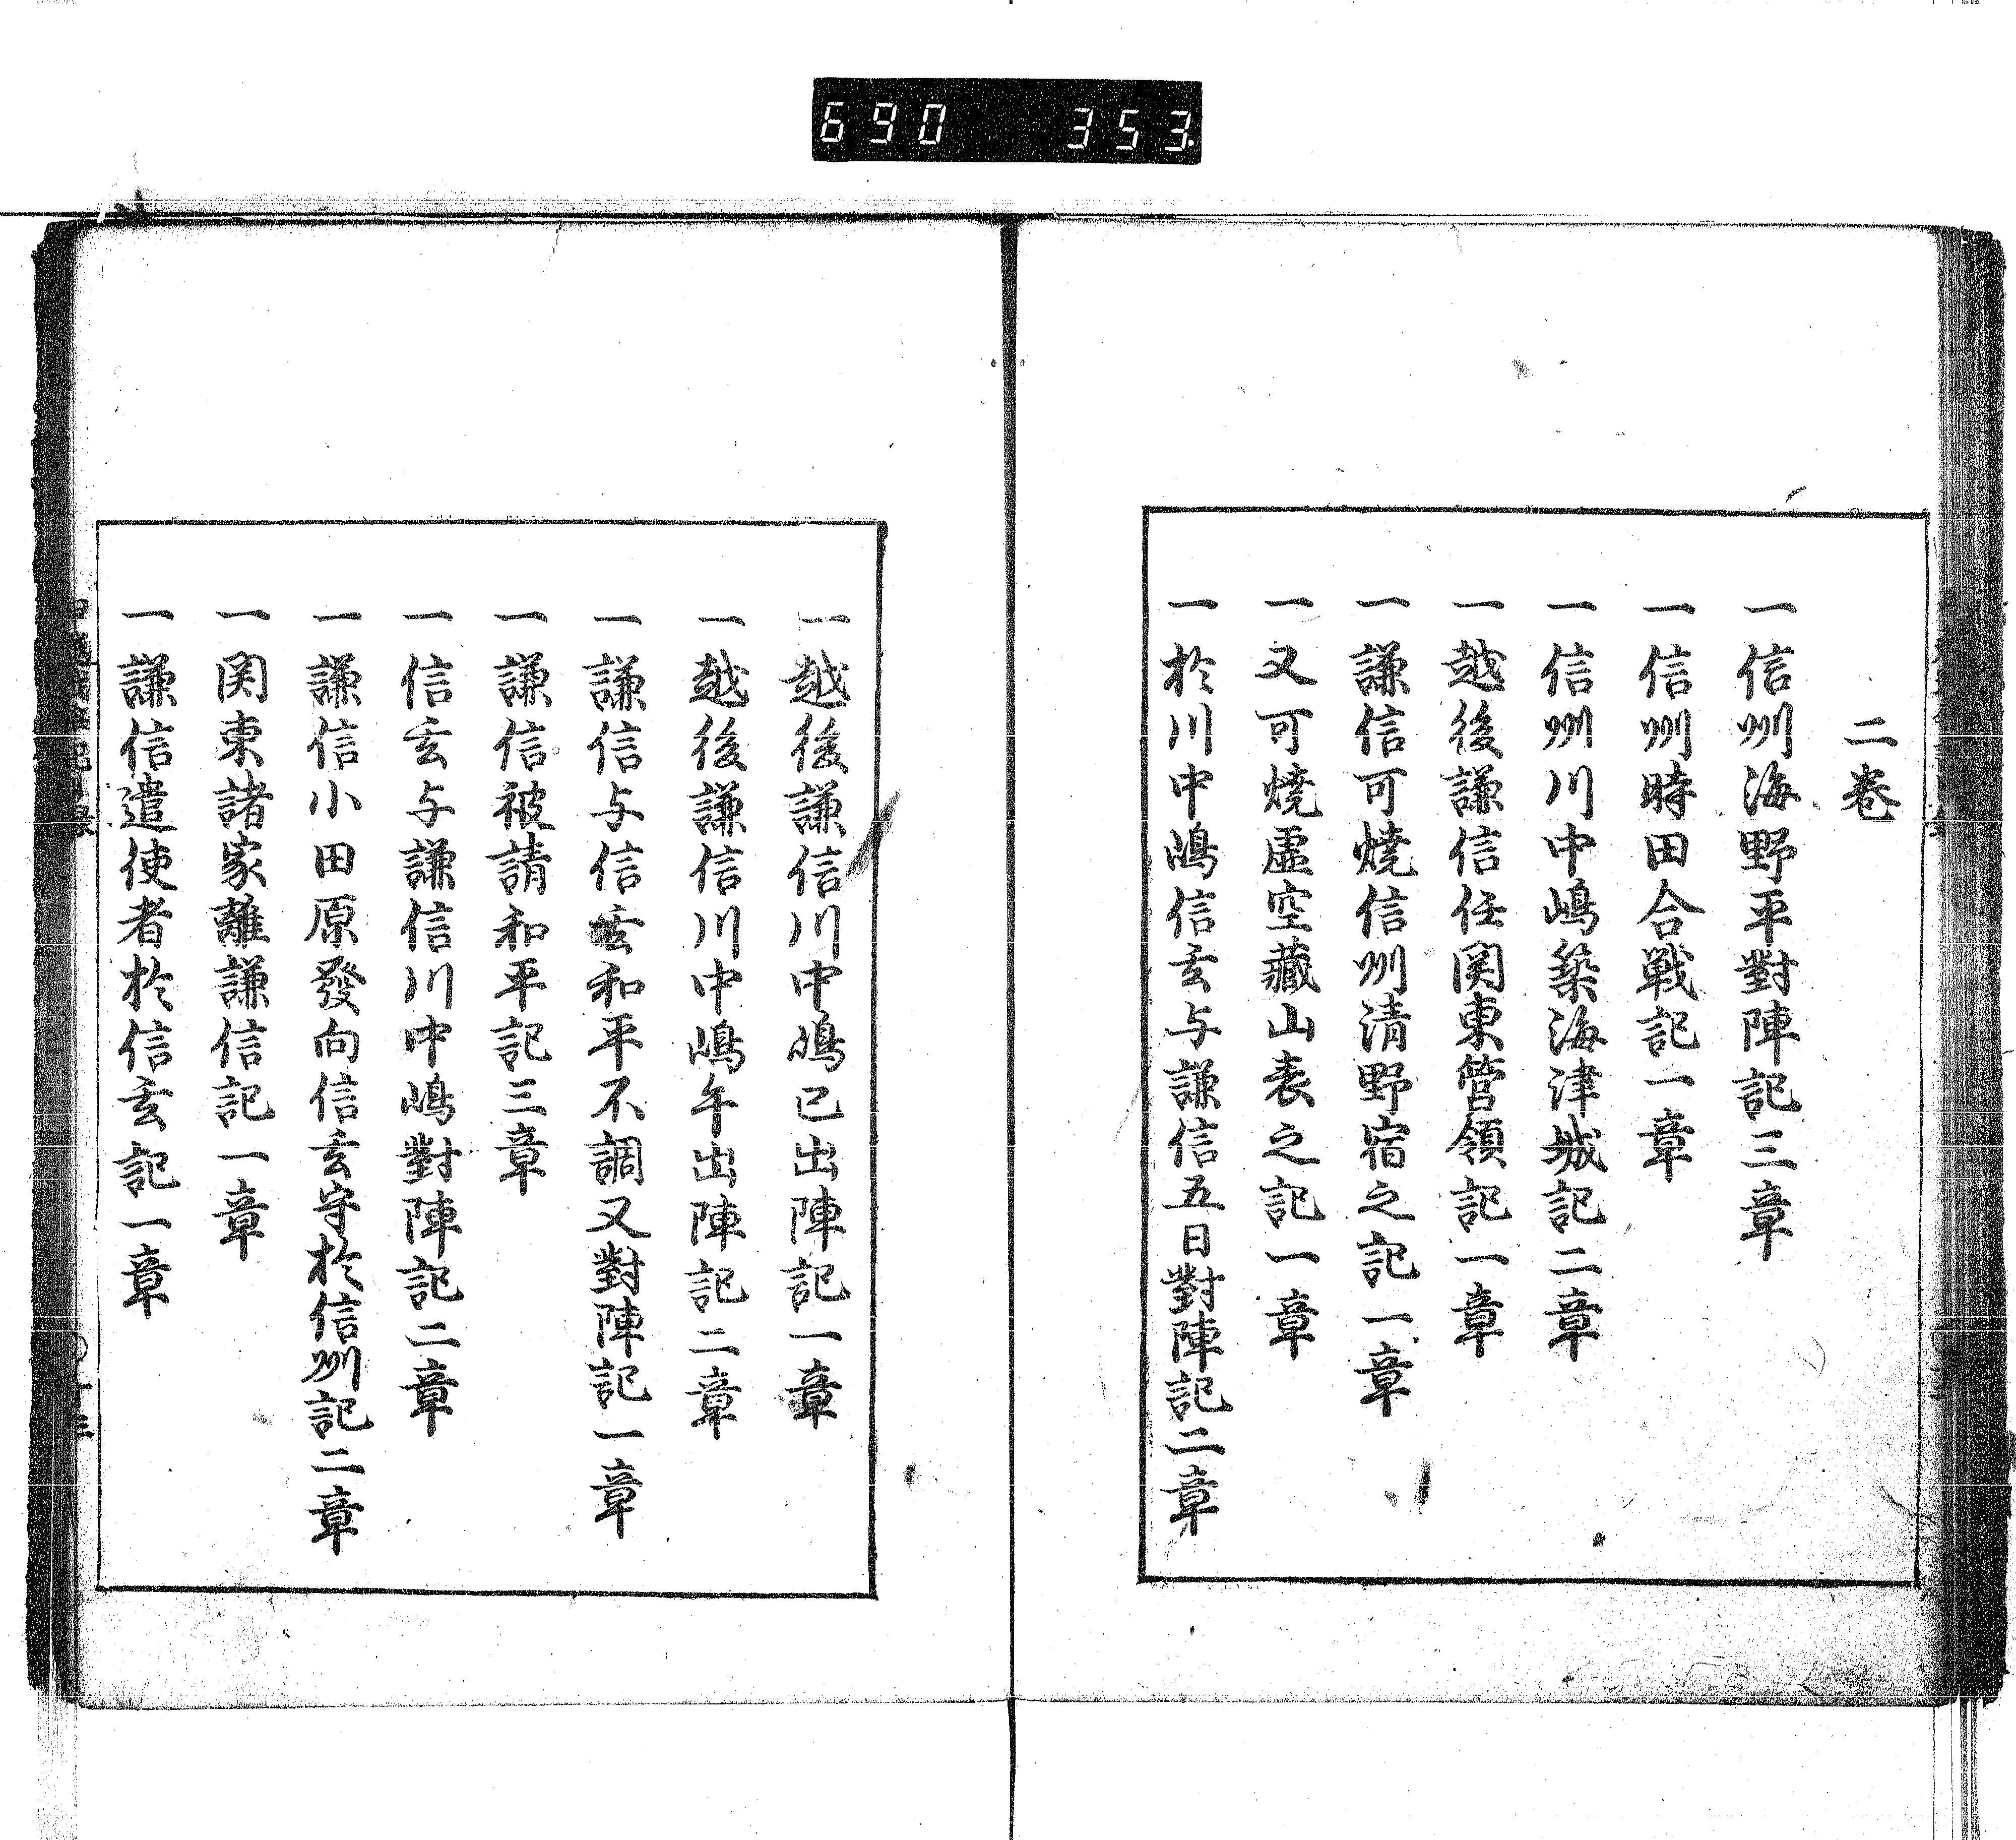 690 353
二巻
一信州海野平對陣記三章
一信州時田合戦記一章
一信州川中嶋築海津城記二章
一越後謙信任関東管領記一章
一謙信可燒信州清野宿之記一章
一又可燒虚空藏山表之記一章
一於川中嶋信玄与謙信五日對陣記二章
一越後謙信川中嶋已出陣記一章
一越後謙信川中嶋午出陣記二章
一謙信与信玄和平不調又對陣記一章
一謙信被請和平記三章
一信玄与謙信川中嶋對陣記二章
一謙信小田原發向信玄守於信州記二章
一関東諸家離謙信記一章
一謙信遣使者於信玄記一章